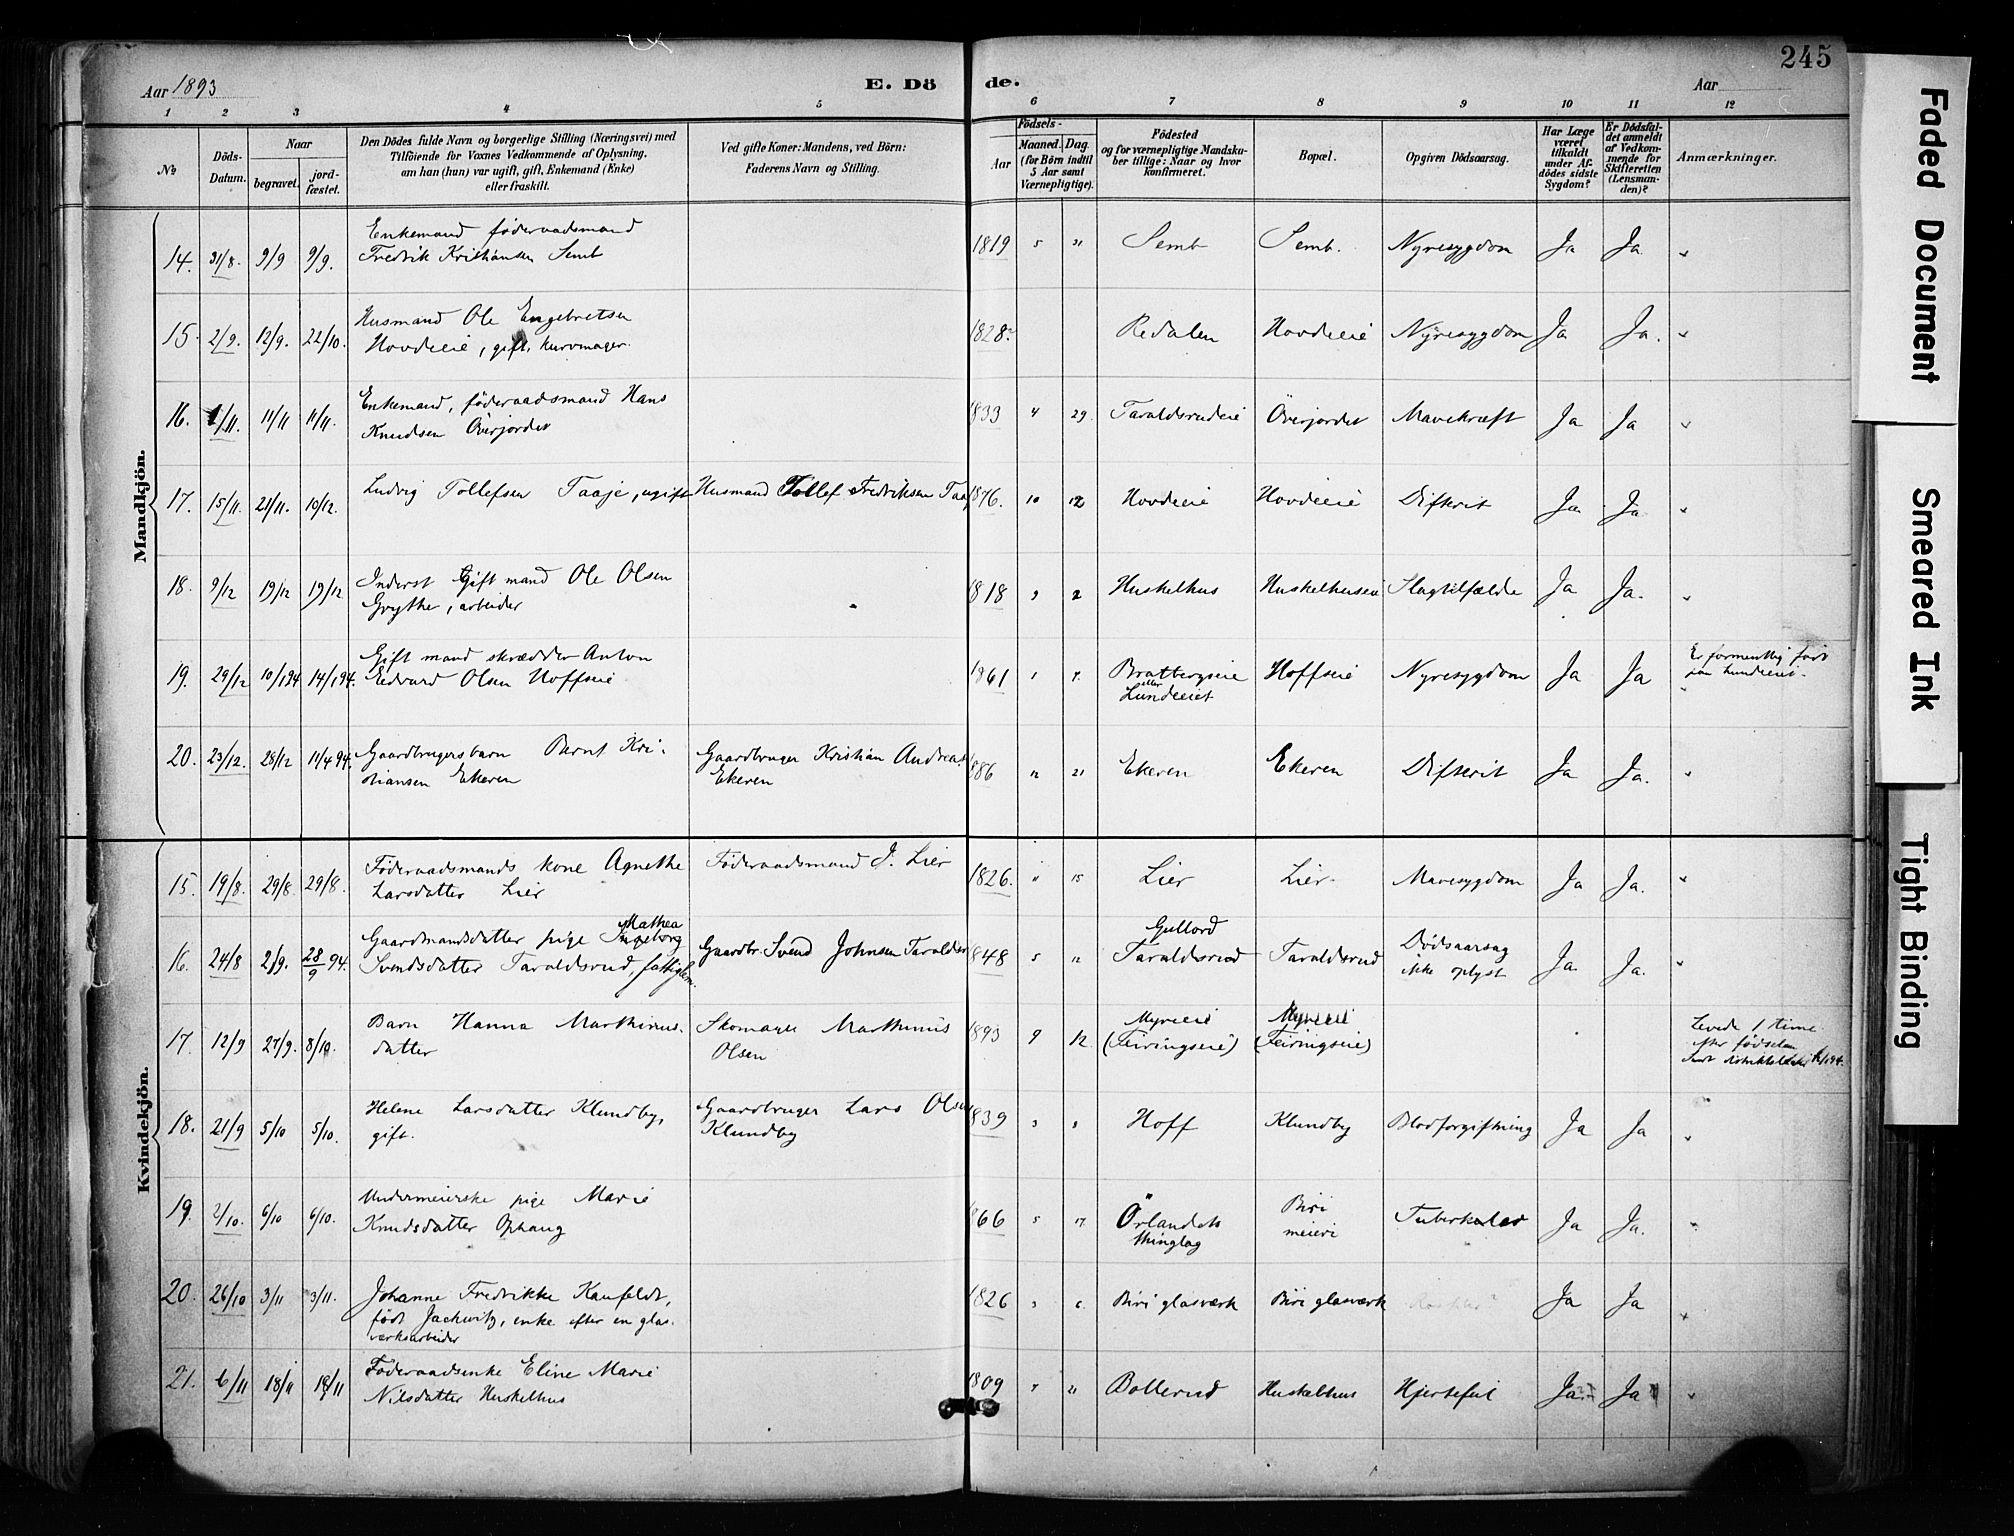 245
Aar 1893
E. Dö
de.
Aar
1 2 3 4 5 6 7 8 9 10 11 12
№
Döds-Datum.
Naar
begravet.
jord-fæstet.
Den Dödes fulde Navn og borgerlige Stilling (Næringsvei) med
Tilföiende for Voxnes Vedkommende af Oplysning,
om han (hun) var ugift, gift, Enkemand (Enke)
eller fraskilt.
Ved gifte Koner: Mandens, ved Börn:
Faderens Navn og Stilling.
Födsels-
Aar
Maaned. Dag.
(for Börn indtil
5 Aar samt
Værnepligtige).
Födested
og for værnepligtige Mandsku-
ber tillige: Naar og hvor
konfirmeret.
Bopæl.
Opgiven Dödsaarsag.
Har Læge
været
tilkaldt
under Af-
dödes sidste
Sygdom?
Er Dödsfal-
det anmeldt
af Vedkom-
mende for
Skifteretten
(Lensman-
den)?
Anmærkninger.
Mandkjön.
14. 31/8. 9/9 9/9. Enkemand föderaadsmand
Fredrik Kristiansen Semb 1819 5 31 Semb Semb. Nyresygdom Ja Ja
15. 2/9. 12/9. 22/10. Husmand Ole Engebretsen
Hovdeeie, gift, kurvmager. 1828 Redalen Hovdeeie Nyresygdom Ja Ja.
16. 1/11. 11/11 11/11. Enkemand, föderaadsmand Hans
Knudsen Överjordet 1833 4 29. Taraldsrudeie Överjordet Mavekræft Ja Ja
17. 15/11. 21/11. 10/12. Ludvig Tollefsen Taaje, ugift Husmand Tollef Fredriksen Taaj 1876. 10 12 Hovdeeie Hovdeeie Difterit Ja Ja
18. 9/12 19/12 19/12 Inderst Gift mand Ole Olsen
Grythe, arbeider 1818 9 2 Huskelhus Huskelhuseie Slagtilfælde Ja Ja.
19. 29/12 10/1 94 14/1 94. Gift mand skrædder Anton
Edvard Olsen Hoffseie 1861 1 7. Brattbergseie
eller
Lundeeiet Hoffseie Nyresygdom Ja Ja Er formentlig född
paa Lundeeiet.
20. 23/12. 28/12 11/4 94. Gaardbrugersbarn Bernt Kri-
stiansen Ekeren Gaardbruger Kristian Andreas.
Ekeren 1886 12 21 Ekeren Ekeren Difterit Ja Ja.
Kvindekjön.
15. 19/8. 29/8. 29/8. Föderaadsmands kone Agnethe
Larsdatter Lier Föderaadsmand J. Lier 1826. 11 15 Lier Lier Mavesygdom Ja Ja.
16. 24/8 2/9. 28/9 94. Gaardmandsdatter pige Mathea
Ingeborg
Svendsdatter Taraldsrud, fattiglem. Gaardbr. Svend Johnsen Taraldsr 1848 5 12 Gullord
Taraldsrud Taraldsrud Dödsaarsag
ikke oplyst Ja Ja.
17. 12/9 27/9. 8/10. Barn Hanna Marthinus-
datter Skomager Marthinus
Olsen 1893 9 12 Myreeie
(Feiringseie) Myreeie
(Feiringseie) Levede 1 time
efter födselen
18. 21/9 5/10 5/10. Helene Larsdatter Klundby,
gift. Gaardbruger Lars Olsen
Klundby 1839 3 Hoff Klundby Blodforgiftning Ja Ja
19. 2/10. 6/10 6/10. Undermeierske pige Marie
Knudsdatter Ophaug 1866 5 17 Örlandets
thinglag Biri
meieri Tuberkulos Ja Ja.
20. 26/10 3/11 3/11. Johanne Fredrikke Kanfeldt,
född Jackwitz, enke efter en glas-
verksarbeider 1826 3 6. Biri glasværk Biri glasværk Ja Ja
21. 6/11 18/11 18/11 Föderaadsenke Eline Marie
Nilsdatter Huskelhus 1809 21 Bollerud Huskelhus Hjertefeil Ja Ja
Faded Document
Smeared Ink
Tight Binding